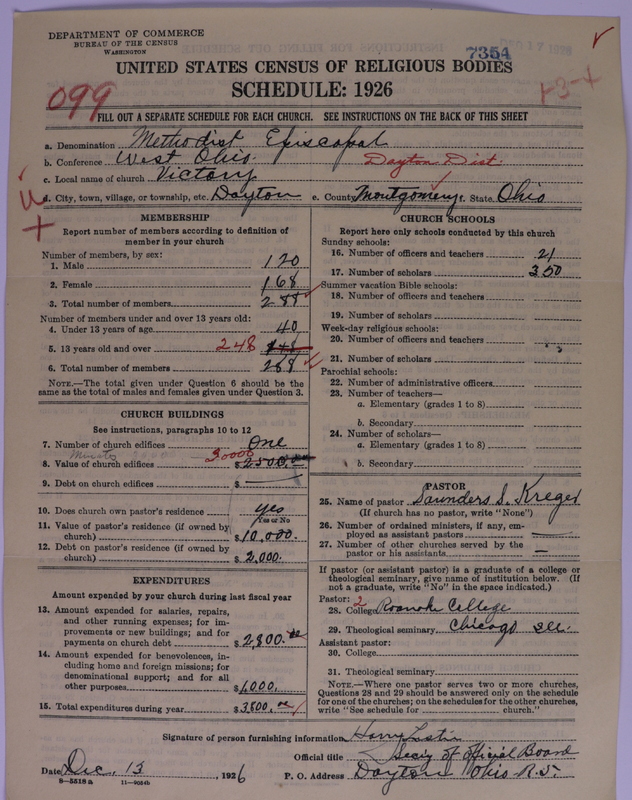 DEPARTMENT OF COMMERCE
BUREAU OF THE CENSUS
WASHINGTON
7354
UNITED STATES CENSUS OF RELIGIOUS BODIES
SCHEDULE: 1926
099
FILL OUT A SEPARATE SCHEDULE FOR EACH CHURCH. SEE INSTRUCTIONS ON THE BACK OF THIS SHEET
a. Denomination Methodist Episcopal
b. Conference West Ohio. Dayton Dist.
c. Local name of church Victory
d. City, town, village, or township, etc. Dayton e. County Montgomery f. State. Ohio
MEMBERSHIP
Report number of members according to definition of
member in your church
Number of members, by sex:
1. Male 120
2. Female 168
3. Total number of members 288
Number of members under and over 13 years old:
4. Under 13 years of age 40
5. 13 years old and over 248
6. Total number of members 288
NOTE.—The total given under Question 6 should be
same as the total of males and females given under Question 3.
CHURCH BUILDINGS
See instructions, paragraphs 10 to 12
7. Number of church edifices One
30000
8. Value of church edifices $2500.
9. Debt on church edifices $
10. Does church own pastor's residence yes
Yes or No
11. Value of pastor's residence (if owned by
church) $10,000.
12. Debt on pastor's residence (if owned by
church) $2,000.
EXPENDITURES
Amount expended by your church during last fiscal year
13. Amount expended for salaries, repairs,
and other running expenses; for im-
provements or new buildings; and for
payments on church debt $2,800.
14. Amount expended for benevolences, in-
cluding home and foreign missions; for
denominational support; and for all
other purposes $1,000.
15. Total expenditures during year $3,800.
CHURCH SCHOOLS
Report here only schools conducted by this church
Sunday schools:
16. Number of officers and teachers 21
17. Number of scholars 350
Summer vacation Bible schools:
18. Number of officers and teachers
19. Number of scholars
Week-day religious schools:
20. Number of officers and teachers
21. Number of scholars
Parochial schools:
22. Number of administrative officers
23. Number of teachers—
a. Elementary (grades 1 to 8)
b. Secondary
24. Number of scholars—
a. Elementary (grades 1 to 8)
b. Secondary
PASTOR
25. Name of pastor Saunders S. Kreger
(If church has no pastor, write "None")
26. Number of ordained ministers, if any, em-
ployed as assistant pastors —
27. Number of other churches served by the
pastor or his assistants —
If pastor (or assistant pastor) is a graduate of a college or
theological seminary, give name of institution below. (If
not a graduate, write "No" in the space indicated.)
Pastor: 2
28. College Roanoke College
29. Theological seminary Chicago Ill.
Assistant pastor:
30. College
31. Theological seminary
NOTE.—Where one pastor serves two or more churches,
Questions 28 and 29 should be answered only on the schedule
for one of the churches; on the schedules for the other churches,
write "See schedule for church."
Signature of person furnishing information Harry
Official title Sec'y of Official Board
Date Dec. 13 1926 P. O. Address Dayton Ohio
8—5518 a 11—9064b